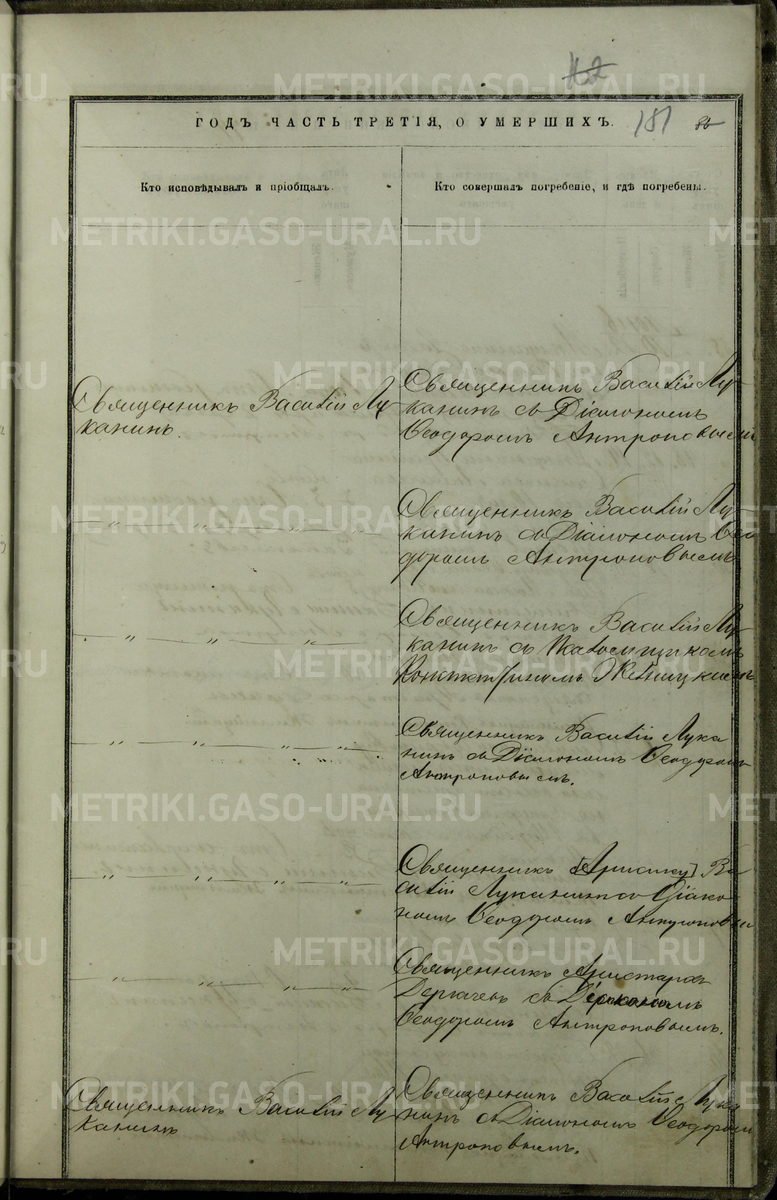 182
ГОДЪ ЧАСТЬ ТРЕТІЯ, О УМЕРШИХЪ.
181
Кто исповѣдывалъ и пріобщалъ.
Кто совершалъ погребеніе, и гдѣ погребены.
Священникъ Василій Лу-
канинъ.
Священникъ Василій Лу-
канинъ съ Діакономъ
Ѳеодоромъ Антроповымъ
— „ — „ — „ —
Священникъ Василій Лу-
канинъ съ Діакономъ Ѳео
доромъ Антроповымъ
— „ — „ — „ —
Священникъ Василій Лу-
канинъ съ Псаломщикомъ
— „ — „ — „ — „ —
Священникъ Василій Лука
нинъ съ Діакономъ Ѳеодоромъ
Антроповымъ.
— „ — „ — „ — „ —
Священникъ [Аристар] Ва
силій Луканинъ съ Діако-
номъ Ѳеодоромъ Антроповы
— „ — „ — „ — „ —
Священникъ Аристархъ
Дергачевъ съ Діакономъ
Ѳеодоромъ Антроповымъ.
Священникъ Василій Лу-
канинъ
Священникъ Василій Лука
нинъ съ Діакономъ Ѳеодоромъ
Антроповымъ.
METRIKI.GASO-URAL.RU